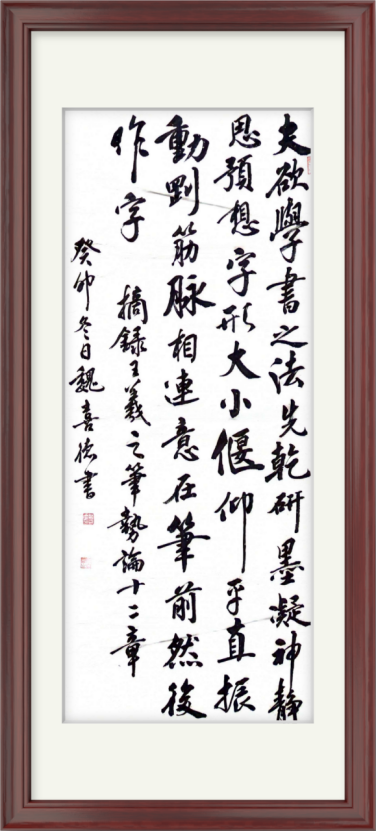 夫欲學書之法先乾研墨凝神靜
思預想字形大小偃仰平直振
動則筋脉相連意在筆前然後
作字 摘錄王羲之筆勢論十二章
癸卯冬日魏喜德書